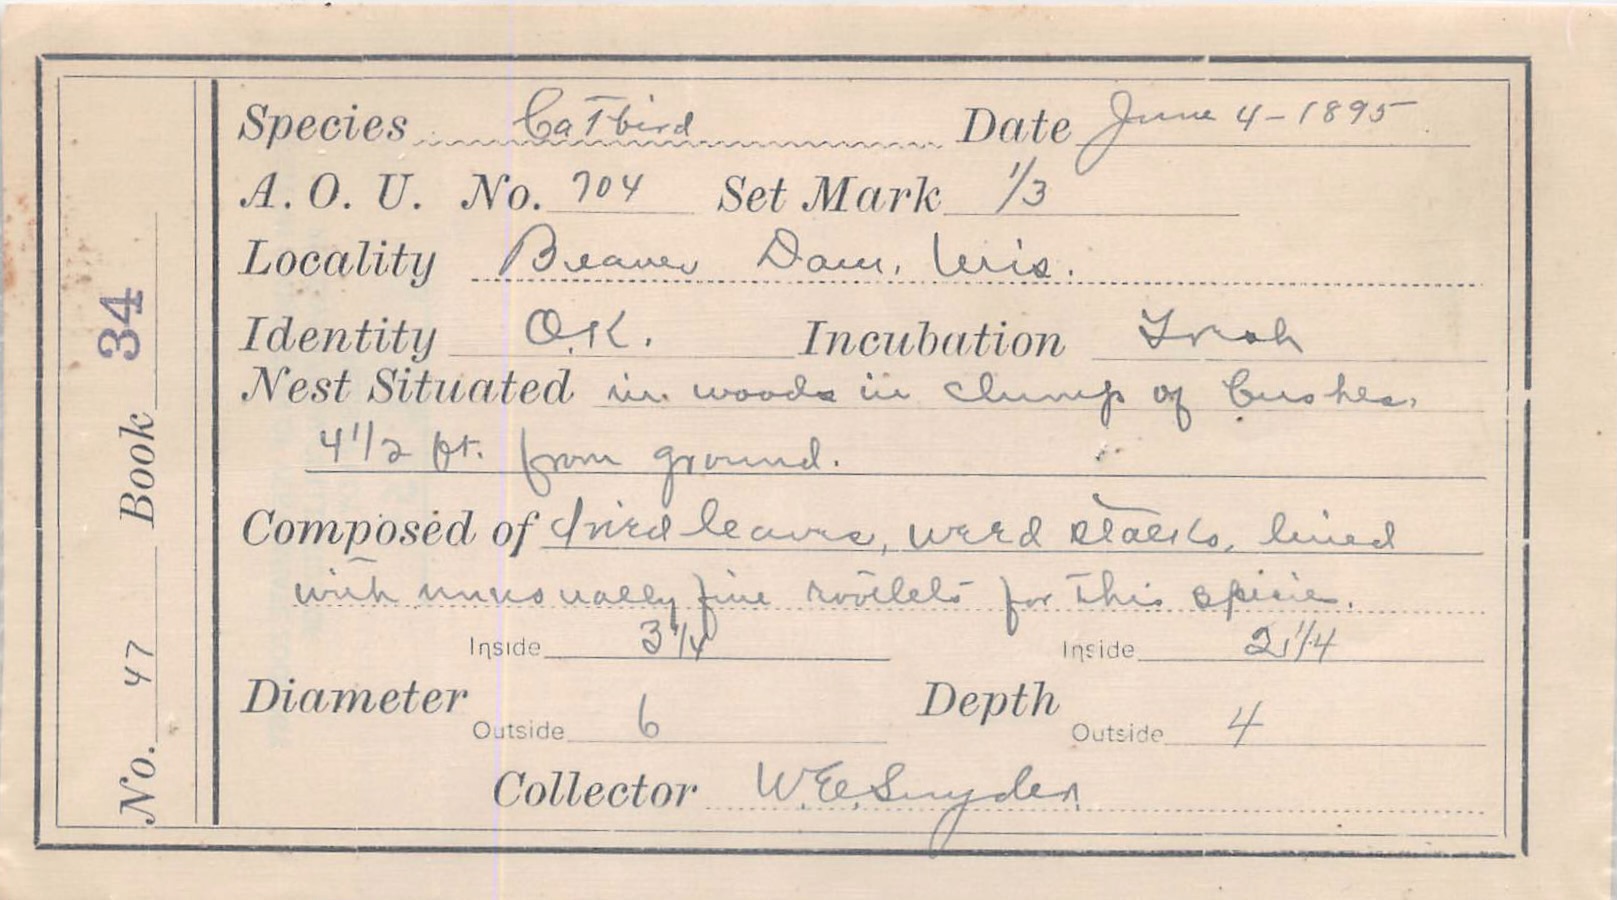 Species Catbird Date June 4-1895
A. O. U. No. 704 Set Mark 1/3
Locality Beaver Dam, Wis.
Identity O.K. Incubation Fresh
Nest Situated in woods in clump of bushes.
4 1/2 ft. from ground.
Composed of dried leaves, weed stalks, lined
with unusually fine rootlets for this specie.
Inside 3 1/4 Inside 2 1/4
Diameter Depth
Outside 6 Outside 4
Collector W.E. Snyder
No. 47 Book 34